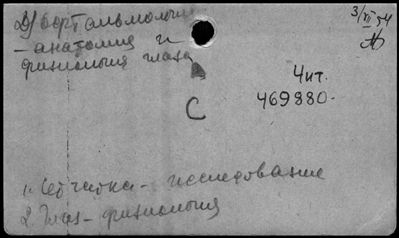 2) Офтальмология
3/VI 54
- анатомия и
физиология глаза
Чит.
С
469880-
1. Сетчатка - исследование
2. Глаз - физиология